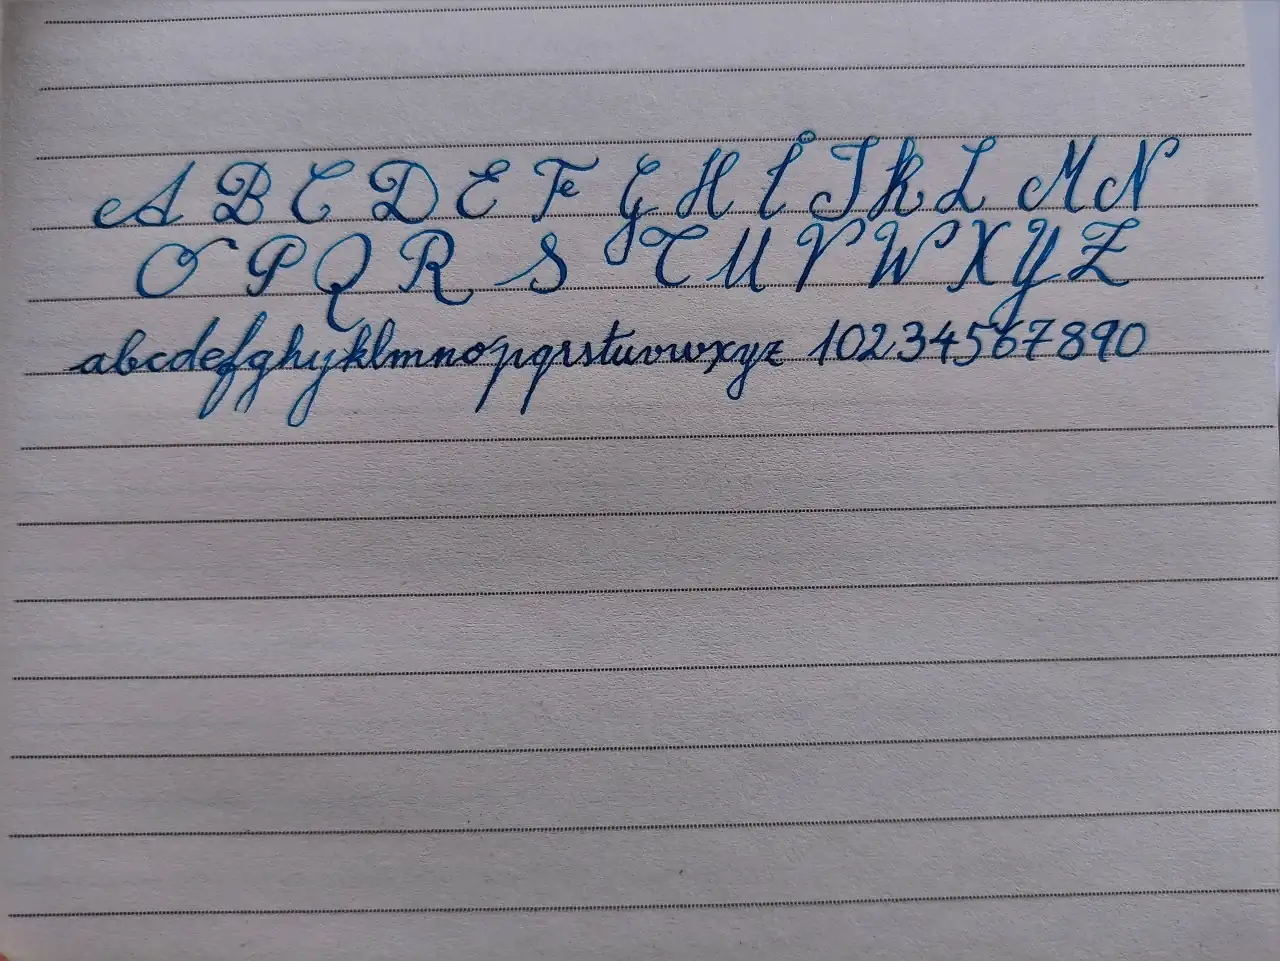 A B C D E F G H I J K L M N
O P Q R S T U V W X Y Z
abcdefghijklmnopqrstuvwxyz 10234567890